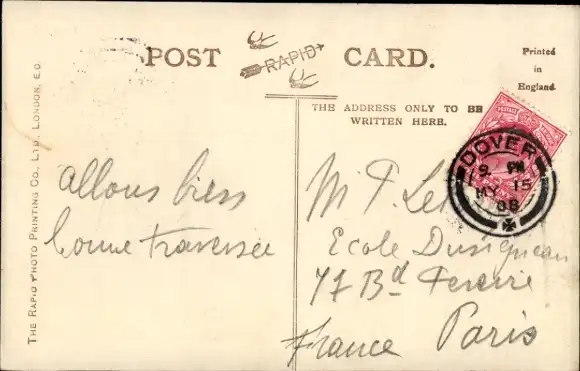 POST CARD.
RAPID
Printed
in
England.
THE ADDRESS ONLY TO BE
WRITTEN HERE.
THE RAPID PHOTO PRINTING CO., LTD., LONDON, E.C.
DOVER
9. PM
15
08
allons bien
bonne traversée
M. P.
Ecole
77 Bd Pereire
France Paris